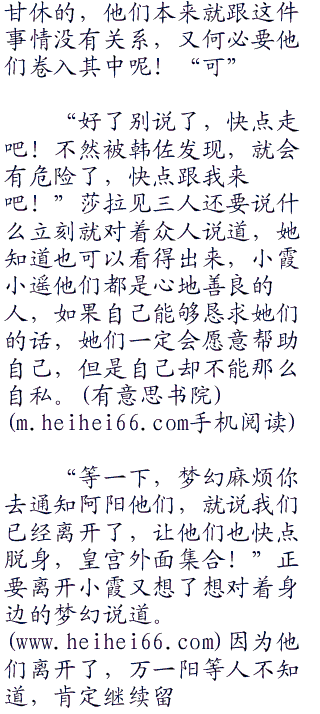 甘休的，他们本来就跟这件
事情没有关系，又何必要他
们卷入其中呢！“可”
“好了别说了，快点走
吧！不然被韩佐发现，就会
有危险了，快点跟我来
吧！”莎拉见三人还要说什
么立刻就对着众人说道，她
知道也可以看得出来，小霞
小遥他们都是心地善良的
人，如果自己能够恳求她们
的话，她们一定会愿意帮助
自己，但是自己却不能那么
自私。(有意思书院)
(m.heihei66.com手机阅读)
“等一下，梦幻麻烦你
去通知阿阳他们，就说我们
已经离开了，让他们也快点
脱身，皇宫外面集合！”正
要离开小霞又想了想对着身
边的梦幻说道。
(www.heihei66.com)因为他
们离开了，万一阳等人不知
道，肯定继续留